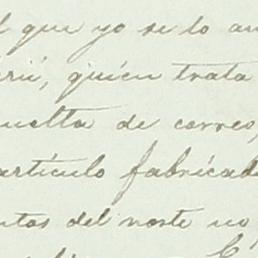 que yo se lo
quién trata
vuelta de correo,
artículo fabricad
ntos del norte no